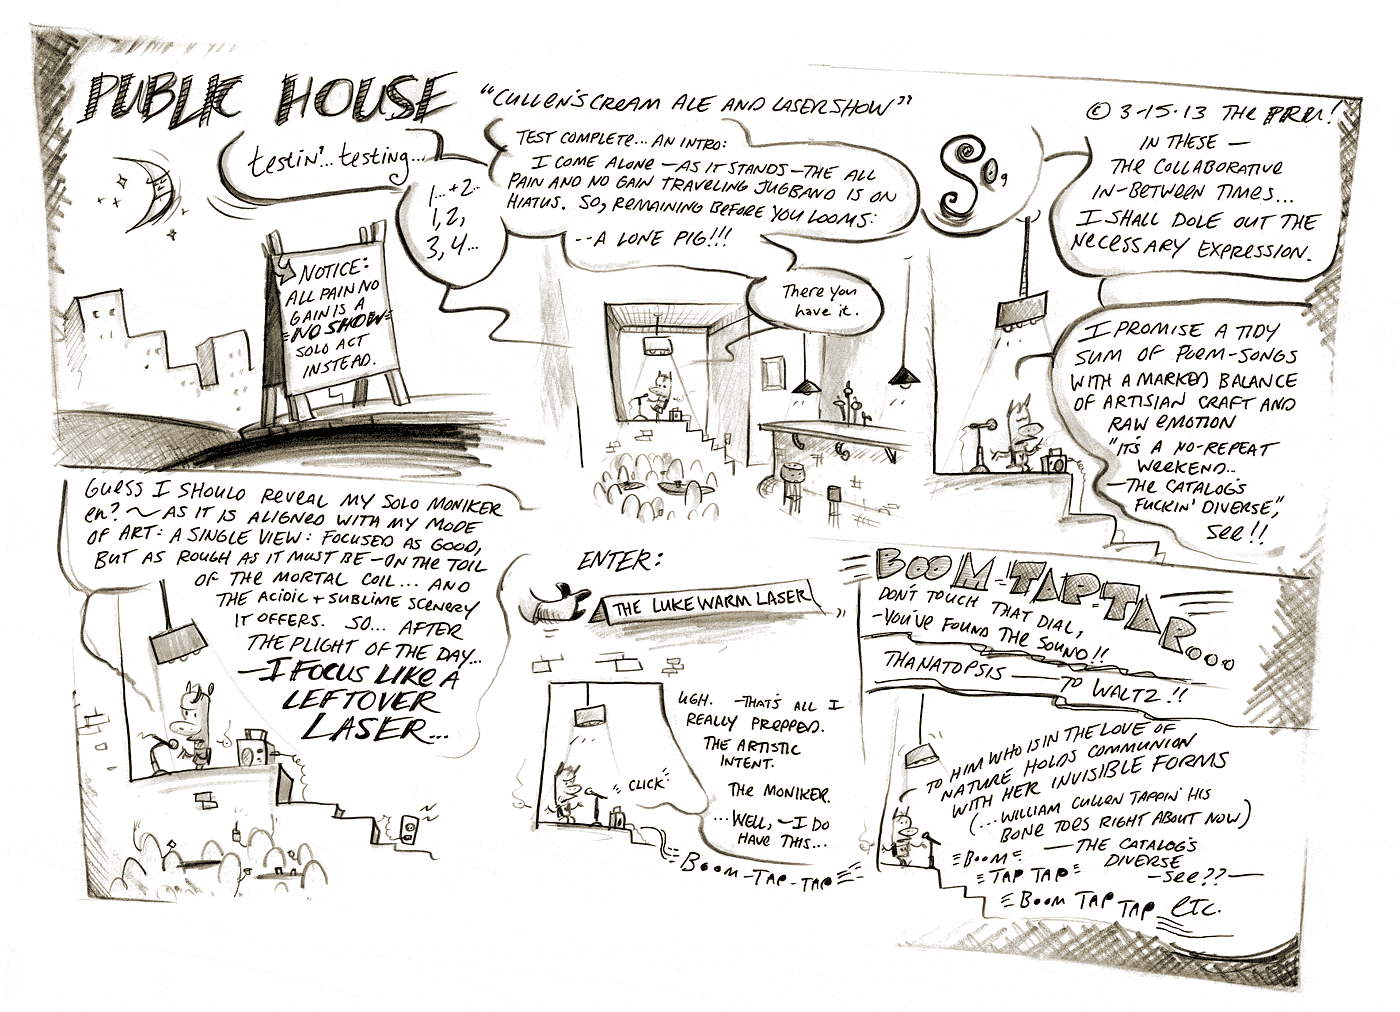 PUBLIC HOUSE
"CULLEN'S CREAM ALE AND LASERSHOW"
© 3-15-13 THE PRU!
testin'... testing...
1...+2...
1, 2,
3, 4...
NOTICE:
ALL PAIN NO
GAIN IS A
NO SHOW
SOLO ACT
INSTEAD.
TEST COMPLETE... AN INTRO:
I COME ALONE — AS IT STANDS — THE ALL
PAIN AND NO GAIN TRAVELING JUGBAND IS ON
HIATUS. SO, REMAINING BEFORE YOU LOOMS:
--A LONE PIG!!!
There you
have it.
SO,
IN THESE —
THE COLLABORATIVE
IN-BETWEEN TIMES...
I SHALL DOLE OUT THE
NECESSARY EXPRESSION.
I PROMISE A TIDY
SUM OF POEM-SONGS
WITH A MARKED BALANCE
OF ARTISIAN CRAFT AND
RAW EMOTION
"IT'S A NO-REPEAT
WEEKEND...
—THE CATALOG'S
FUCKIN' DIVERSE",
SEE!!
GUESS I SHOULD REVEAL MY SOLO MONIKER
EH? ~ AS IT IS ALIGNED WITH MY MODE
OF ART: A SINGLE VIEW: FOCUSED AS GOOD,
BUT AS ROUGH AS IT MUST BE — ON THE TOIL
OF THE MORTAL COIL... AND
THE ACIDIC + SUBLIME SCENERY
IT OFFERS. SO... AFTER
THE PLIGHT OF THE DAY...
—I FOCUS LIKE A
LEFTOVER
LASER...
ENTER:
THE LUKEWARM LASER
UGH. —THAT'S ALL I
REALLY PREPPED.
THE ARTISTIC
INTENT.
THE MONIKER.
...WELL, —I DO
HAVE THIS...
"CLICK"
BOOM-TAP-TAP
BOOM-TAP-TAP...
DON'T TOUCH THAT DIAL,
-YOU'VE FOUND THE SOUND!!
THANATOPSIS — TO WALTZ!!
TO HIM WHO IS IN THE LOVE OF
NATURE HOLDS COMMUNION
WITH HER INVISIBLE FORMS
(...WILLIAM CULLEN TAPPIN' HIS
BONE TOES RIGHT ABOUT NOW)
BOOM
—THE CATALOG'S
DIVERSE
TAP TAP
—SEE??—
BOOM TAP TAP ETC.